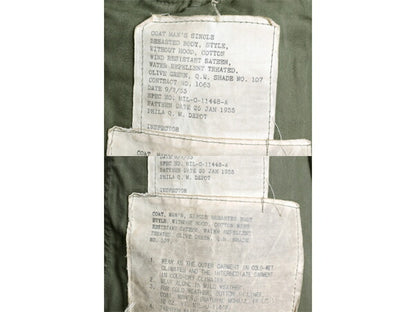 COAT MAN'S SINGLE
BREASTED BODY, STYLE,
WITHOUT HOOD, COTTON
WIND RESISTANT SATEEN,
WATER REPELLENT TREATED,
OLIVE GREEN, Q.M. SHADE NO. 107
CONTRACT NO. 1063
DATE 9/7/53
SPEC NO. MIL-O-11448-A
PATTERN DATE 26 JAN 1955
PHILA Q.M. DEPOT
INSPECTOR
COAT, MAN'S
DATE 9/7/53
SPEC NO. MIL-O-11448-A
PATTERN DATE 26 JAN 1955
PHILA Q.M. DEPOT
INSPECTOR
COAT, MAN'S, SINGLE BREASTED BODY
STYLE, WITHOUT HOOD, COTTON WIND
RESISTANT SATEEN, WATER REPELLENT
TREATED, OLIVE GREEN, Q.M. SHADE
NO. 107
1. WEAR AS THE OUTER GARMENT IN COLD-WET
CLIMATES AND THE INTERMEDIATE GARMENT
IN COLD-DRY CLIMATES
2. WEAR ALONE IN MILD WEATHER.
3. FOR COLD WEATHER, BUTTON